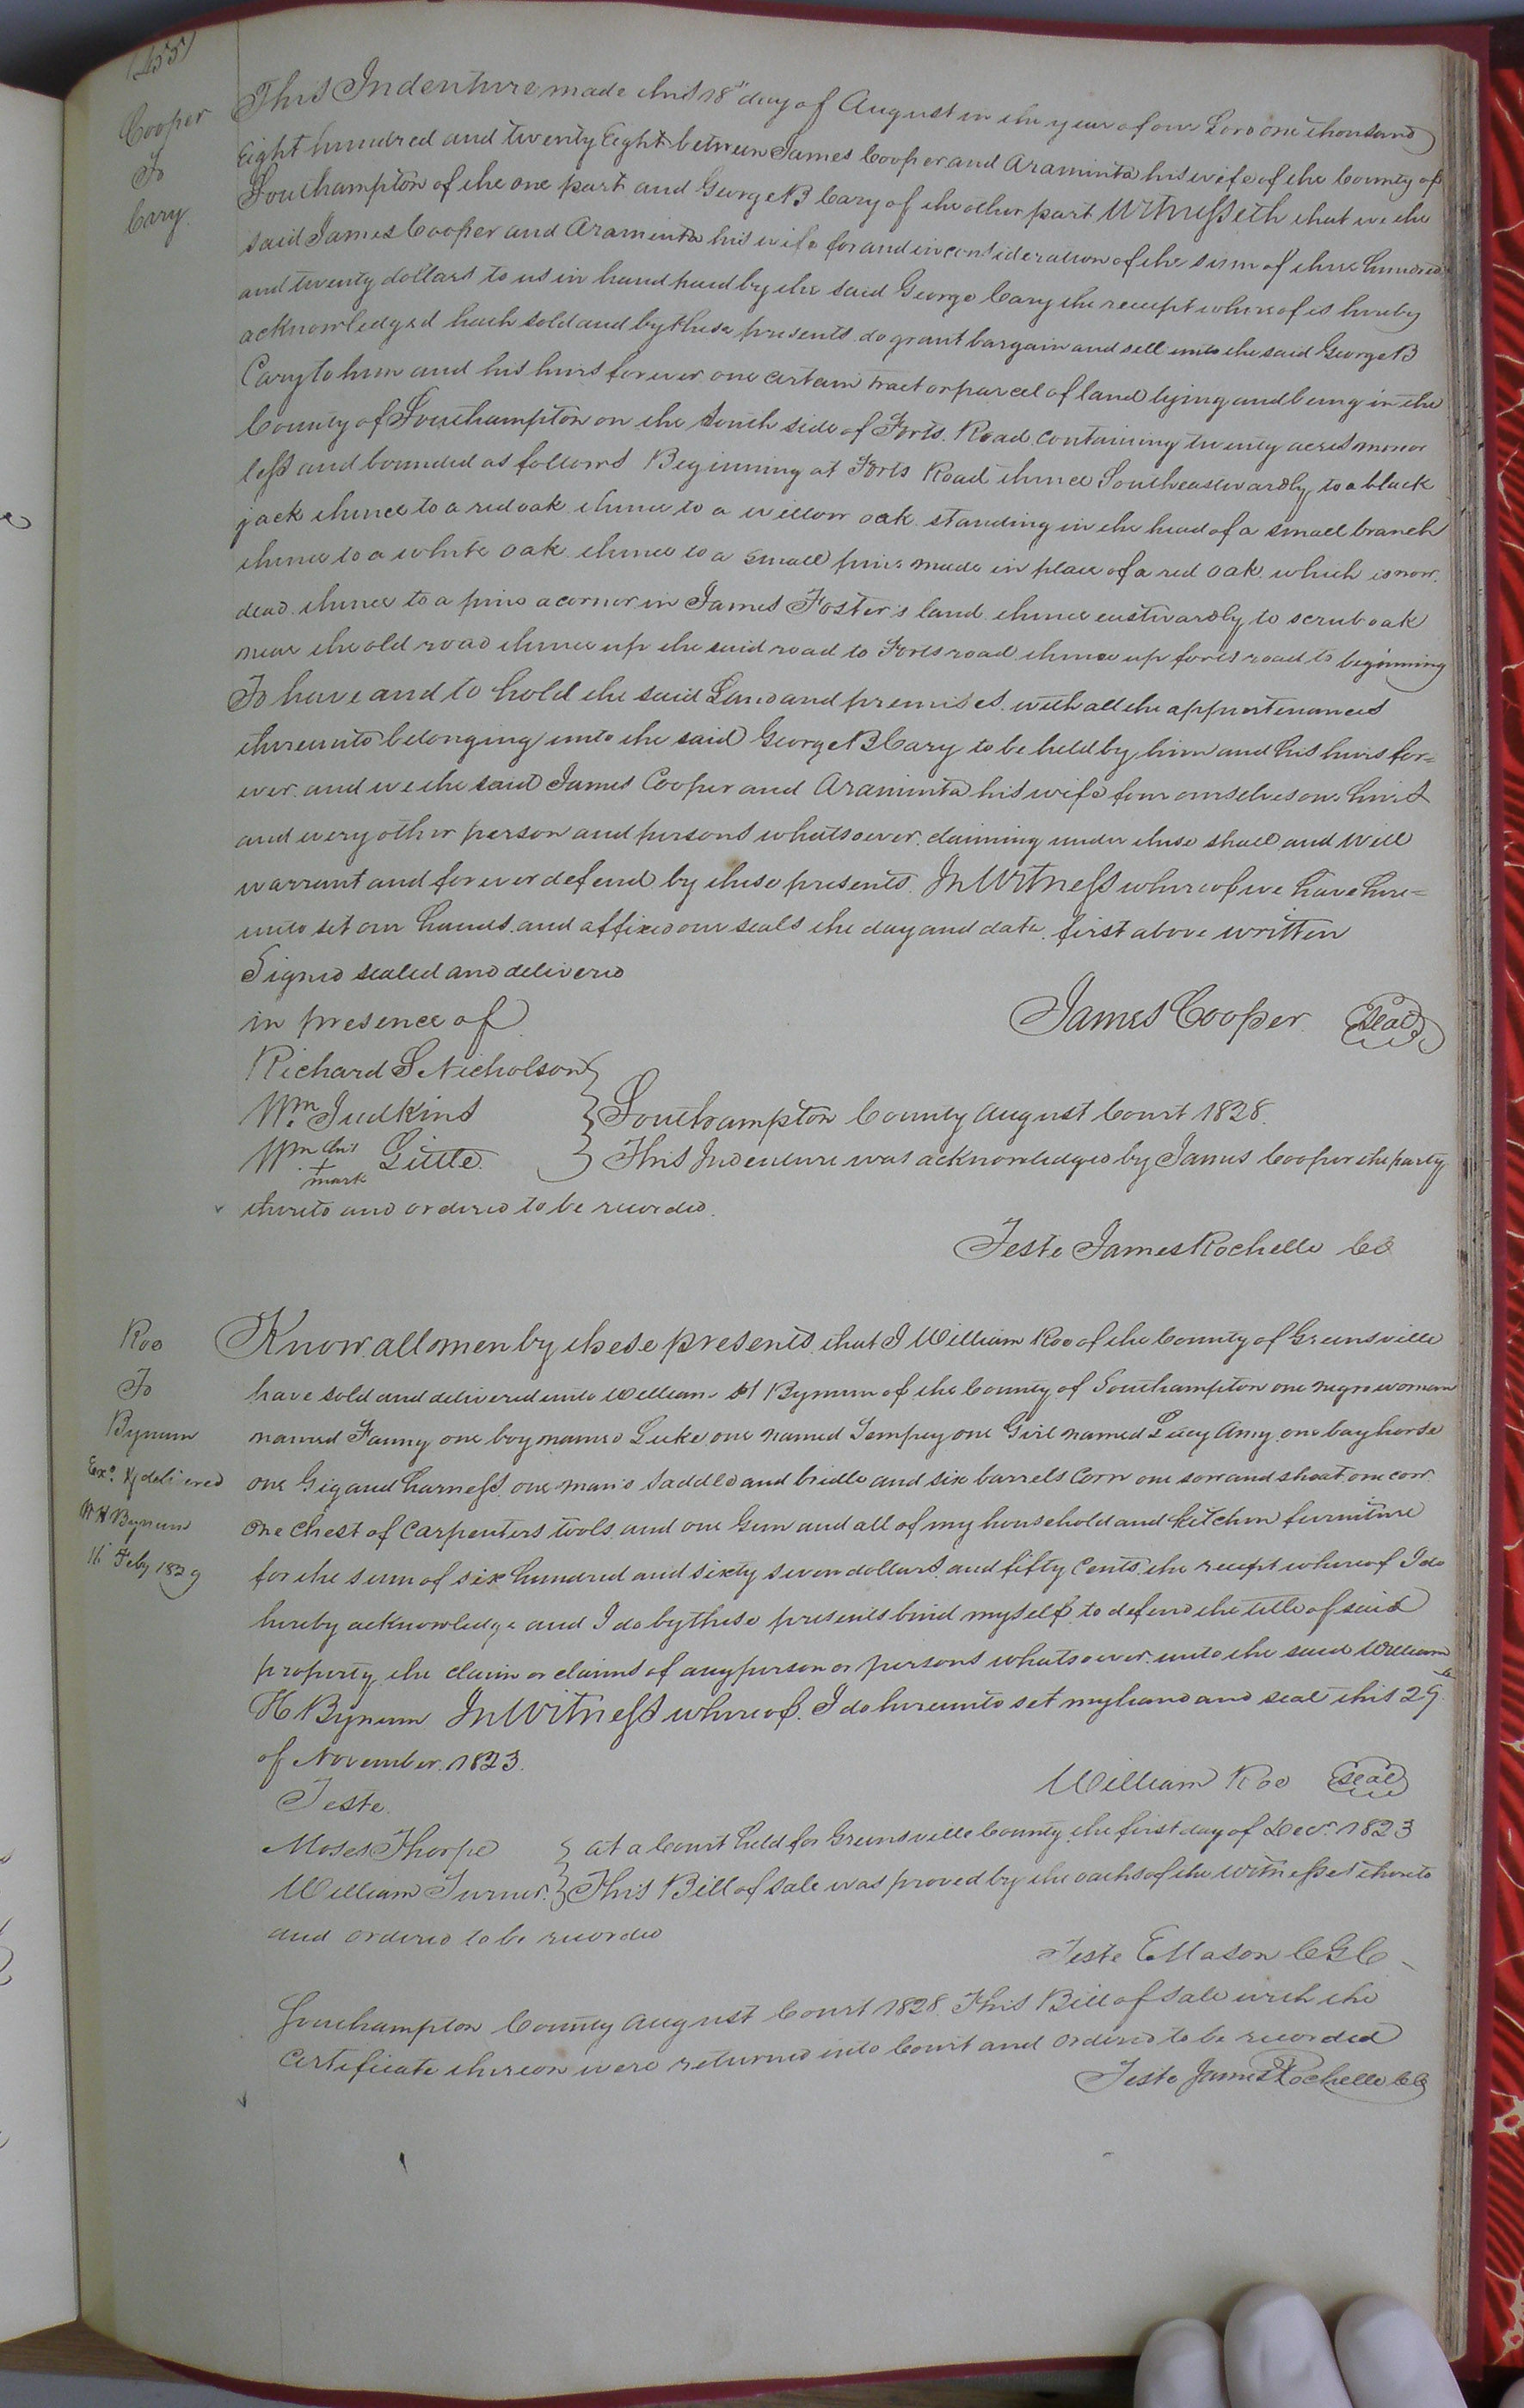 (455)
Cooper
To
Cary.
This Indenture made this 18" day of August in the year of our Lord one thousand
Eight hundred and twenty Eight between James Cooper and Araminta his wife of the County of
Southampton of the one part and George B Cary of the other part Witnesseth that we the
said James Cooper and Araminta his wife for and in consideration of the sum of three hundred
and twenty dollars to us in hand paid by the said George Cary the receipt whereof is hereby
acknowledged hath sold and by these presents do grant bargain and sell unto the said George B
Cary to him and his heirs forever one certain tract or parcel of land lying and being in the
County of Southampton on the South side of Forts Road containing twenty acres more or
less and bounded as follows Beginning at Forts Road thence Southeastwardly to a black
jack thence to a red oak thence to a willow oak standing in the head of a small branch
thence to a white oak thence to a small pine made in place of a red oak which is now
dead thence to a pine a corner in James Foster's land thence eastwardly to scrub oak
near the old road thence up the said road to Forts road thence up forts road to beginning
To have and to hold the said Land and premises with all the appurtenances
thereunto belonging unto the said George B Cary to be held by him and his heirs for=
ever and we the said James Cooper and Araminta his wife from ourselves our heirs
and every other person and persons whatsoever claiming under these shall and will
warrant and forever defend by these presents. In Witness whereof we have here=
unto set our hands and affixed our seals the day and date first above written
Signed sealed and delivered
in presence of
James Cooper Seal
Richard S Nicholson
Wm. Judkins
Wm. his + mark Little
Southampton County August Court 1828.
This Indenture was acknowledged by James Cooper the party
thereto and ordered to be recorded.
Teste James Rochelle CC
Roe
To
Bynum
Exd. & delivered
W H Bynum
16 Feby 1829
Know all men by these presents that I William Roe of the County of Greensville
have sold and delivered unto William H Bynum of the County of Southampton one negro woman
named Fanny one boy named Luke one named Tempey one Girl named Lucy Amy one bay horse
one Gig and harness one man's saddle and bridle and six barrels Corn one sow and shoat one cow
one chest of Carpenters tools and one Gun and all of my household and kitchen furniture
for the sum of six hundred and sixty seven dollars and fifty Cents the receipt whereof I do
hereby acknowledge and I do by these presents bind myself to defend the title of said
property the claim or claims of any person or persons whatsoever unto the said William
H Bynum In Witness whereof I do hereunto set my hand and seal this 29th
of November 1823.
William Roe Seal
Teste
Moses Thorpe
William Turner
At a Court held for Greensville County the first day of Decr. 1823
This Bill of Sale was proved by the oaths of the witnesses thereto
and ordered to be recorded
Teste E Mason CGC
Southampton County August Court 1828. This Bill of Sale with the
Certificate thereon were returned into Court and ordered to be recorded
Teste James Rochelle CC